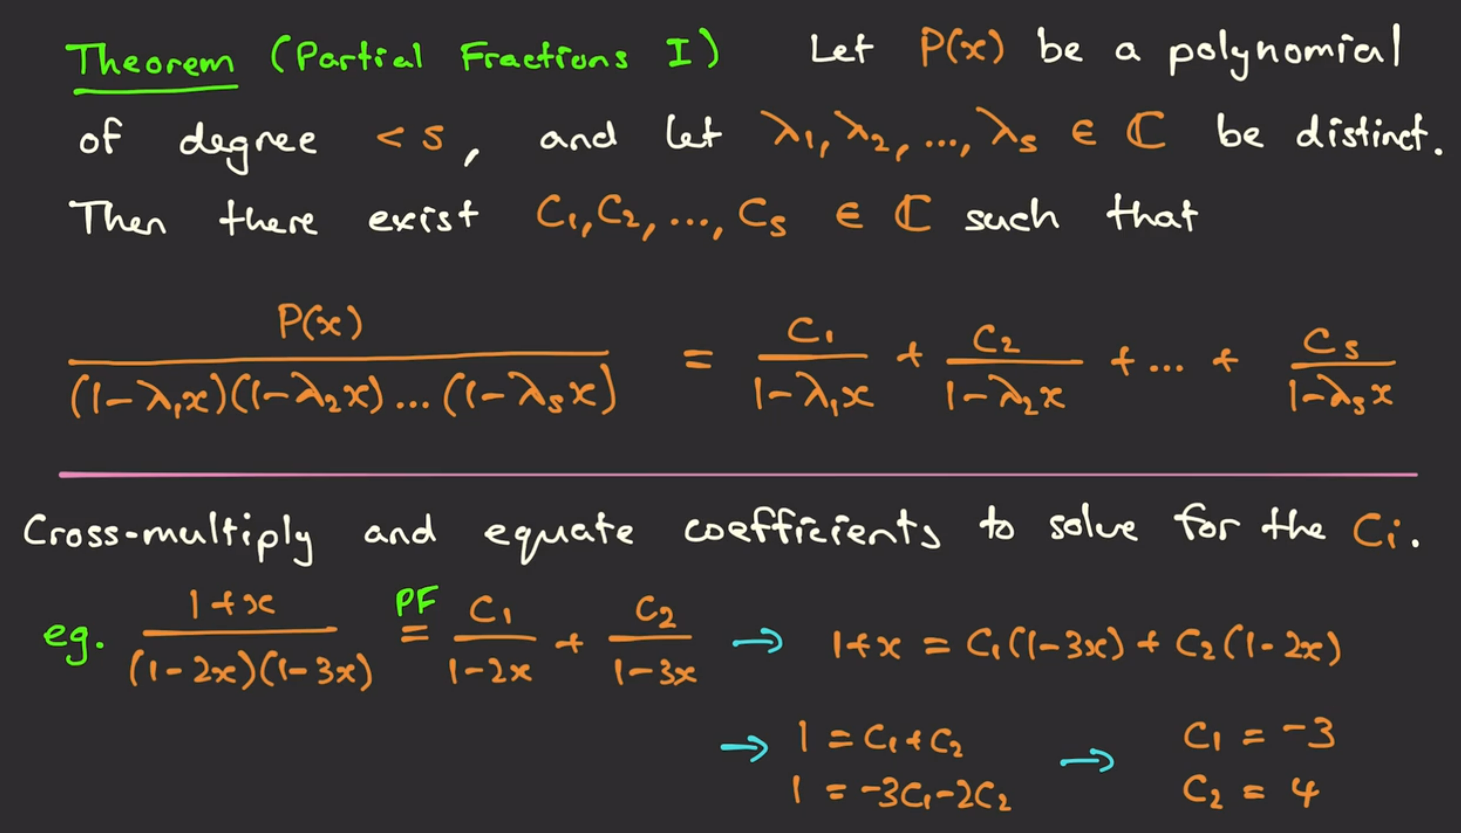 Theorem (Partial Fractions I) Let P(x) be a polynomial
of degree < s, and let λ₁, λ₂, ..., λₛ ∈ ℂ be distinct.
Then there exist C₁, C₂, ..., Cₛ ∈ ℂ such that
P(x) / (1-λ₁x)(1-λ₂x)...(1-λₛx) = C₁/(1-λ₁x) + C₂/(1-λ₂x) + ... + Cₛ/(1-λₛx)
Cross-multiply and equate coefficients to solve for the Cᵢ.
eg. 1+x / (1-2x)(1-3x) PF = C₁/(1-2x) + C₂/(1-3x) → 1+x = C₁(1-3x) + C₂(1-2x)
→ 1 = C₁+C₂ → C₁ = -3
1 = -3C₁-2C₂ C₂ = 4